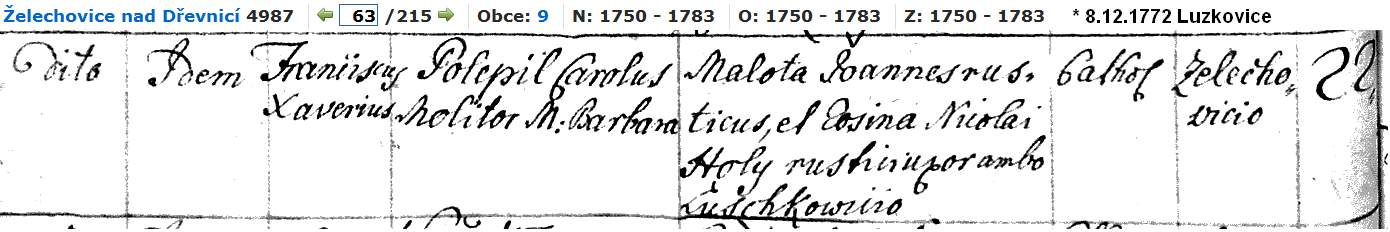 Želechovice nad Dřevnicí 4987 63 /215 Obce: 9 N: 1750 - 1783 O: 1750 - 1783 Z: 1750 - 1783 * 8.12.1772 Luzkovice
Dito Idem Franciscus Polepil Carolus Malota Joannes rus= Cathol Zelecho=
Xaverius Molitor M: Barbara ticus, et Rosina Nicolai vicio
Holy rustici uxor ambo
Luschkowicio